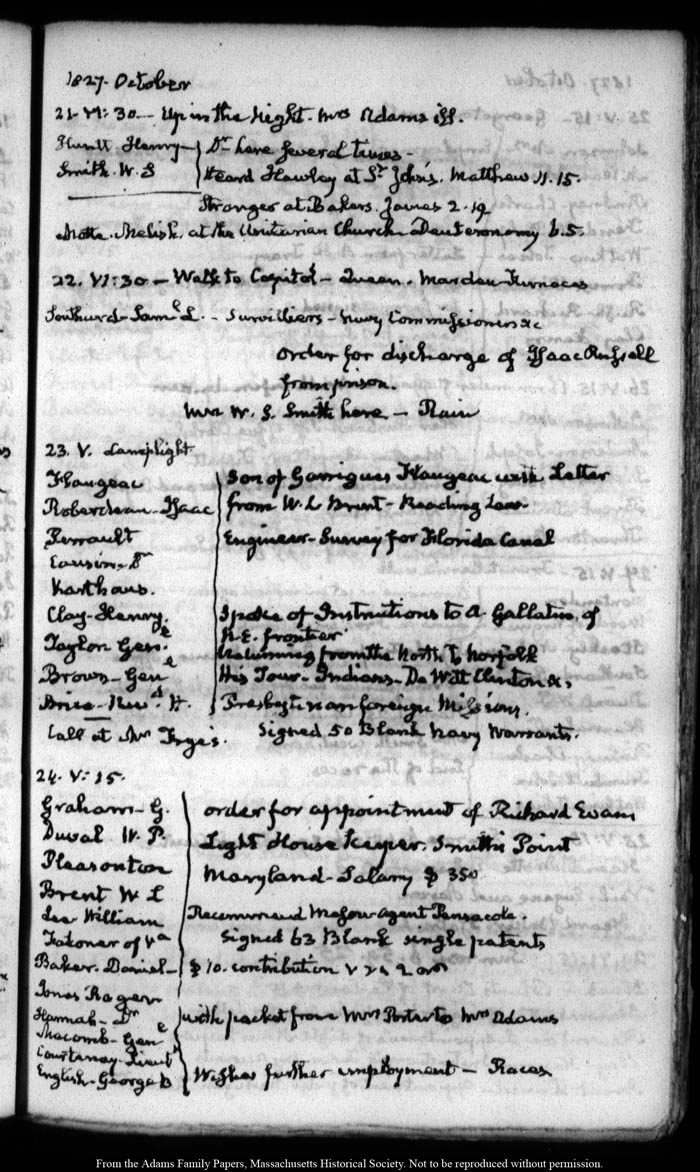 1827. October
21. VI:30. Up in the Night. Mrs Adams ill.
Huntt Henry Dr here several times.
Smith. W. S Heard Hawley at St John's. Matthew 11. 15.
Stronger at Bakers. James 2. 19
at the Unitarian Church. Deuteronomy 6. 5.
22. VI:30. Walk to Capitol
Southard Saml L. Survilliers Navy Commissioners &c
order for discharge of Isaac Russell
from prison.
Mrs W. S. Smith here — Rain
23. V. Lamplight
Flaugeac Son of Garrigues Flaugeac with Letter
Roberdeau. Isaac from W. L Brent — Reading Law.
Perrault Engineer. Survey for Florida Canal
Causin. Dr
Karthaus.
Clay. Henry. Spoke of Instructions to A. Gallatin, of
N. E. frontier
Taylor Genl. Returning from the North to Norfolk
Brown. Genl His Tour. Indians. De Witt Clinton &c,
Brice. Revd. H. Presbyterian foreign Missions.
Call at Mr Frye's. Signed 50 Blank Navy Warrants.
24. V:15.
Graham. G. order for appointment of Richard Evans
Duval W. P. Light House Keeper. Smith's Point
Pleasonton Maryland. Salary $ 350
Brent W L
Lee William Recommend Agent Pensacola.
of Va Signed 63 Blank single patents
Baker. Daniel $ 10. contribution
Jonas
Hannah. Dr with packet from Mrs Porter to Mrs Adams
Macomb. Genl
Courtenay. Lieutt
English. George B Wishes further employment — Races
From the Adams Family Papers, Massachusetts Historical Society. Not to be reproduced without permission.